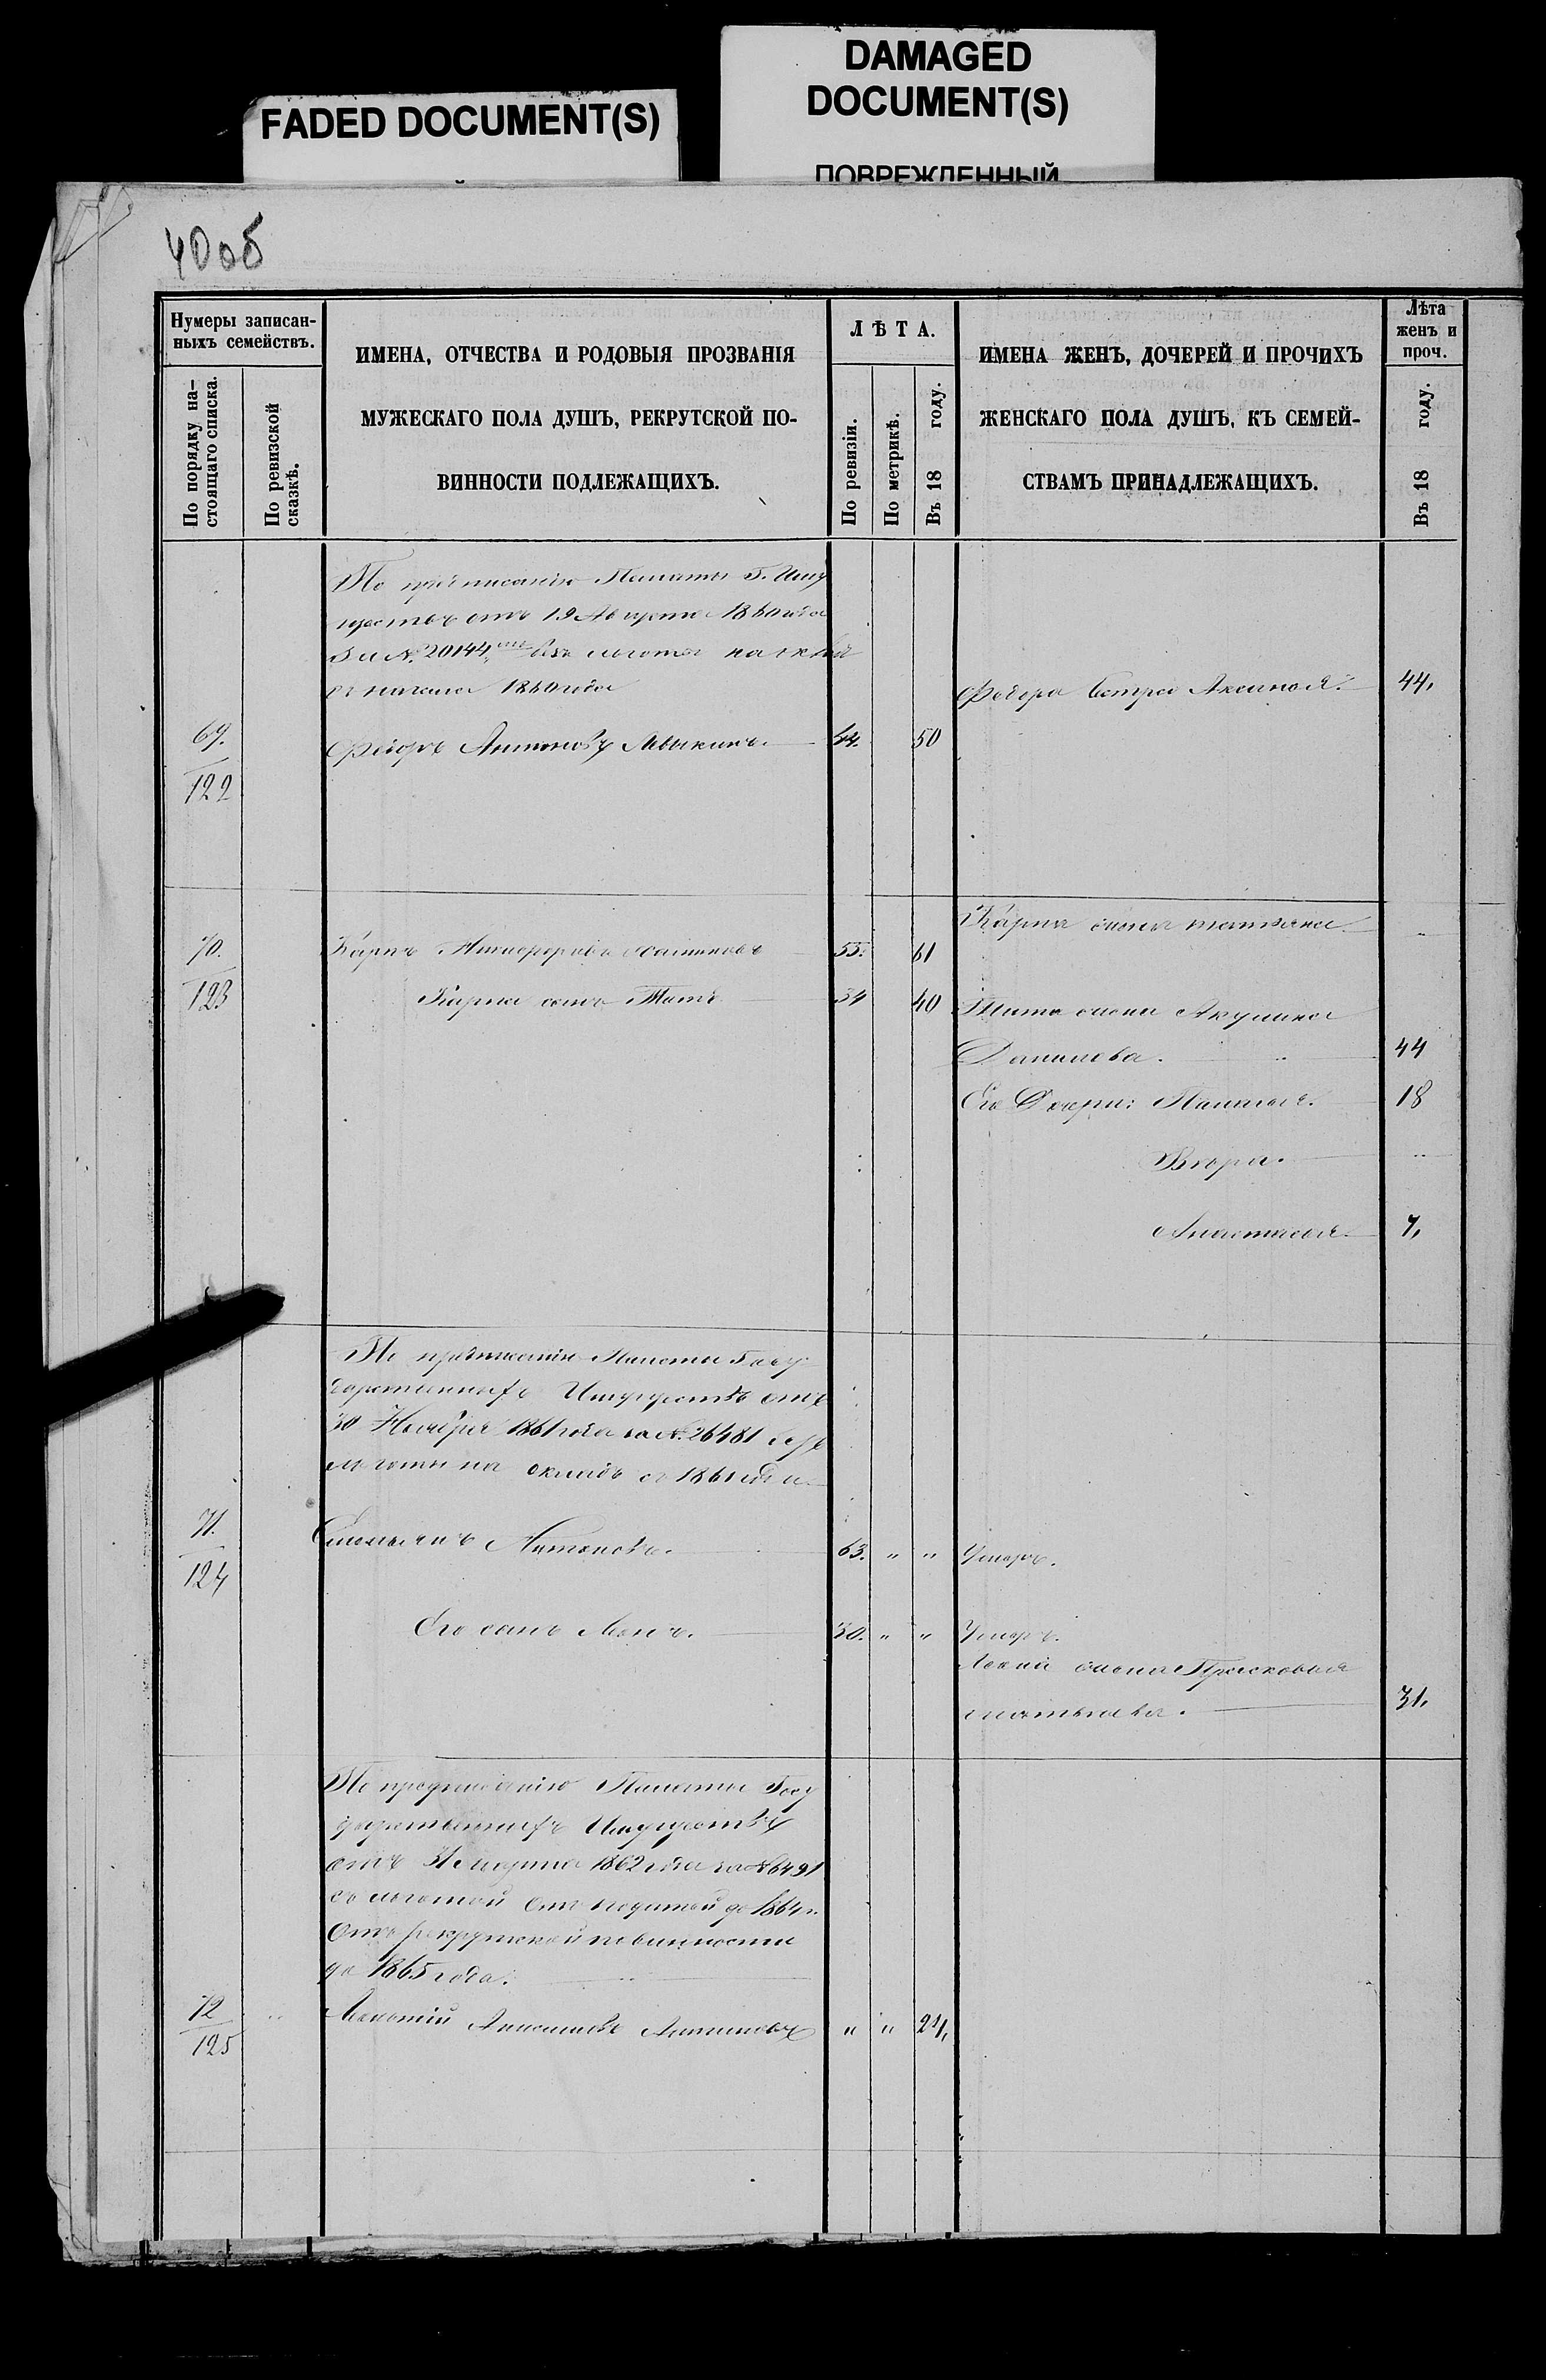 DAMAGED
DOCUMENT(S)
FADED DOCUMENT(S)
ПОВРЕЖДЕННЫЙ
40об
Нумеры записан-
ныхъ семействъ.
По порядку на-
стоящаго списка.
По ревизской
сказкѣ.
ИМЕНА, ОТЧЕСТВА И РОДОВЫЯ ПРОЗВАНІЯ
МУЖЕСКАГО ПОЛА ДУШЪ, РЕКРУТСКОЙ ПО-
ВИННОСТИ ПОДЛЕЖАЩИХЪ.
ЛѢТА.
По ревизіи.
По метрикѣ.
Въ 18 году.
ИМЕНА ЖЕНЪ, ДОЧЕРЕЙ И ПРОЧИХЪ
ЖЕНСКАГО ПОЛА ДУШЪ, КЪ СЕМЕЙ-
СТВАМЪ ПРИНАДЛЕЖАЩИХЪ.
Лѣта
женъ и
проч.
Въ 18 году.
По предписанію Палаты Г. Иму
ществъ отъ 19 Августа 1860 года
За №. 20144, безъ льготы
съ начала 1860 года
Федора сестра Аксинья. 44.
69.
122
Федоръ Антоновъ 44. 50
Карпа жена Татьяна
70.
123
Карпъ Никифоровъ 55. 61
Карпа сынъ Титъ 34 40
Тита жена Акулина
Данилова. 44
Его Дочери: Пелагея. 18
Вѣра.
Анастасья 7,
По предписанію Палаты Госу
дарственныхъ Имуществъ отъ
30 Ноября 1861 года за №. 26481 безъ
льготы на окладъ съ 1861 года
71.
124
Антоновъ. 63. " " Умеръ.
Его сынъ 30. " " Умеръ.
жена Прасковья
31.
По предписанію Палаты Госу
дарственныхъ Имуществъ
отъ 31 Марта 1862 года за № 6491
съ льготой отъ податей до 1864 г.
Отъ рекрутской повинности
до 1865 года.
72
125
" " 24,